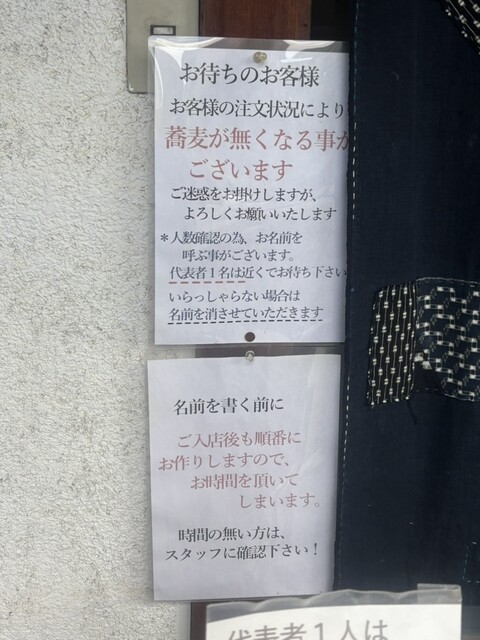 お待ちのお客様
お客様の注文状況により
蕎麦が無くなる事が
ございます
ご迷惑をお掛けしますが、
よろしくお願いいたします
＊人数確認の為、お名前を
呼ぶ事がございます。
代表者１名は近くでお待ち下さい
いらっしゃらない場合は
名前を消させていただきます
名前を書く前に
ご入店後も順番に
お作りしますので、
お時間を頂いて
しまいます。
時間の無い方は、
スタッフに確認下さい！
代表者１人は